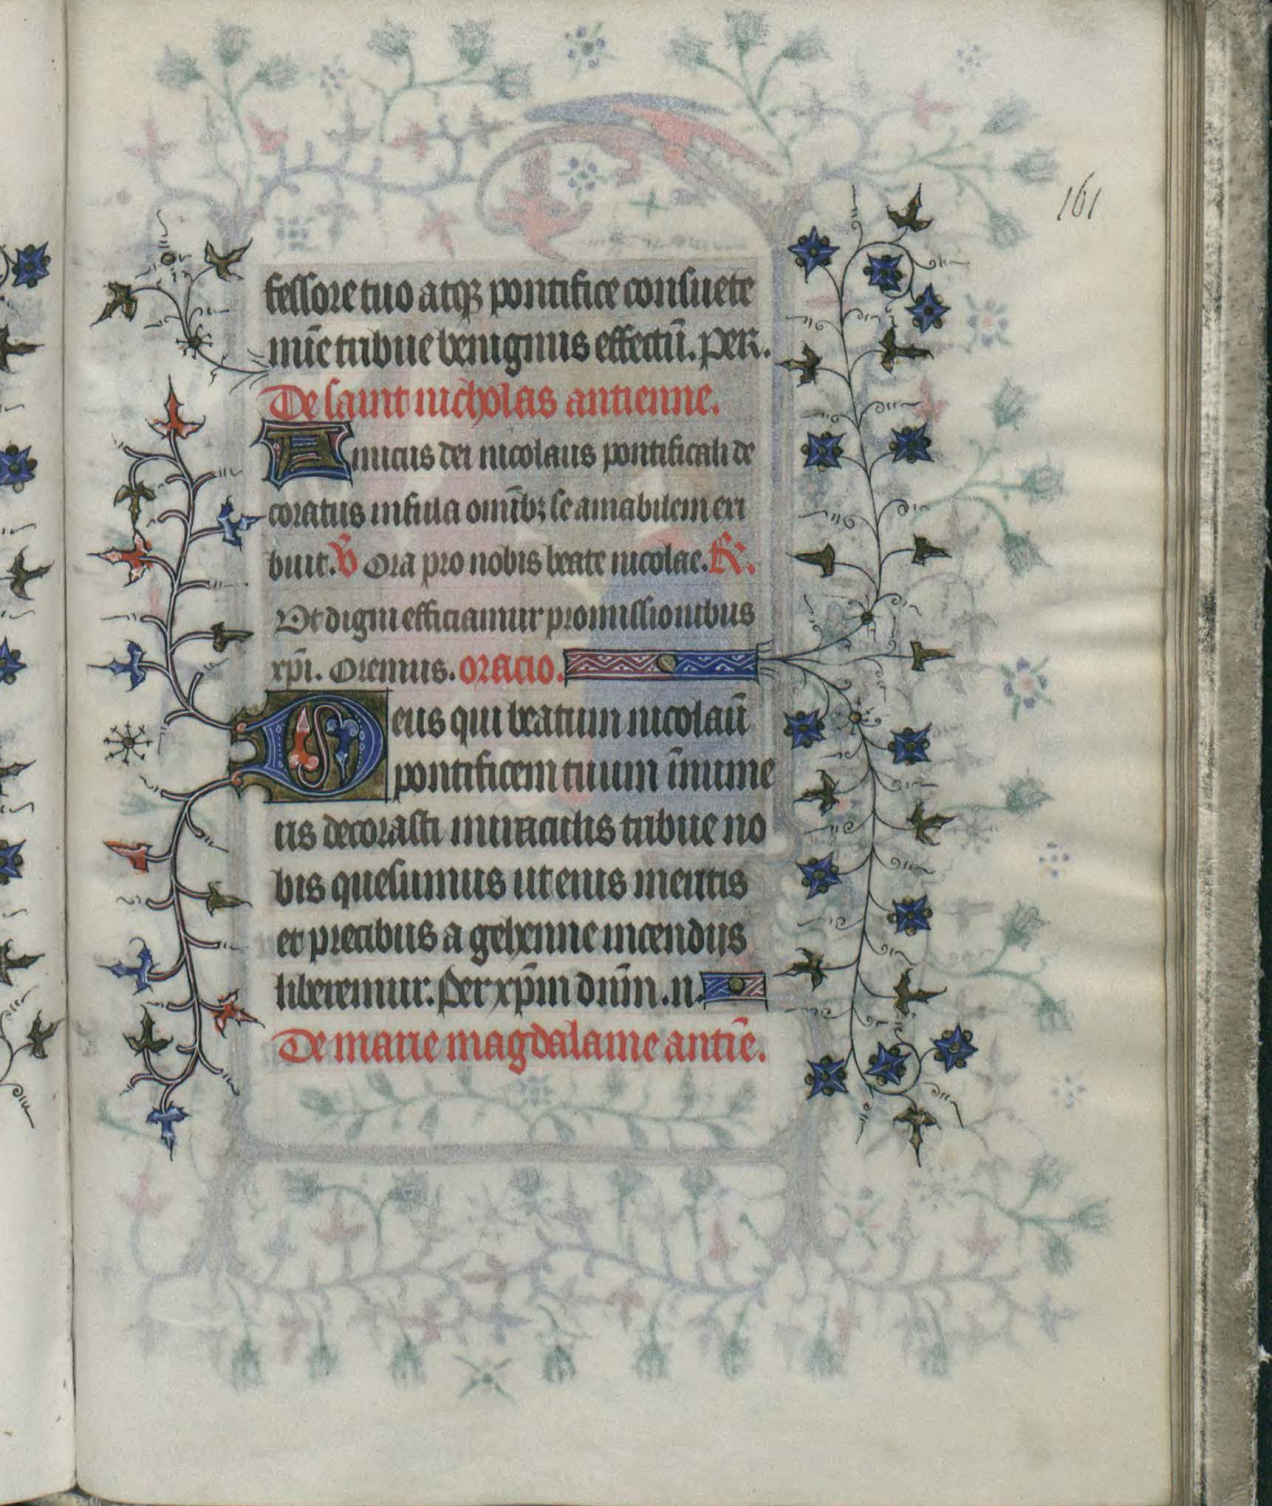 161
fessore tuo atqꝫ pontifice consuete
mūe tribue benignus effectū. per.
De saint nicholas antienne.
Amicus dei nicolaus pontificali de
coratus infula omībꝫ se amabilem exi
buit. ℣ Ora pro nobis beate nicolae. ℟.
Vt digni efficiamur promissionibus
xp̄i. Oremus. oracio.
Deus qui beatum nicolaū
pontificem tuum īnume
ris decorasti miraculis tribue no
bis quesumus ut eius meritis
et precibus a gehenne incendiis
liberemur. Per xp̄m dn̄m. n.
De marie magdalaine antiē.